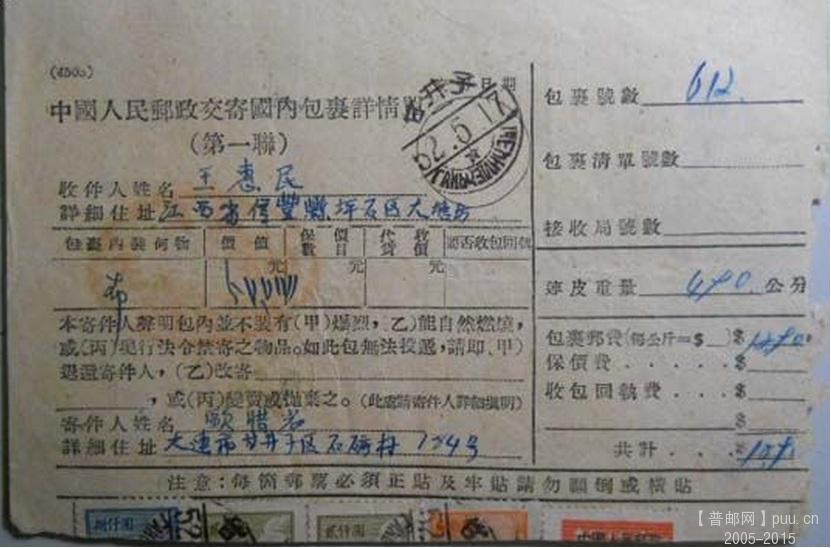 (4505)
日期
中國人民郵政交寄國內包裹詳情單
(第一聯)
甘井子
52.5.17
包裹號數 612
包裹清單號數
接收局號數
連皮重量 470 公分
包裹郵費(每公斤=$ )$
保價費 . . . . . . $
收包回執費 . . . $
$
共計 . . . $
收件人姓名 王惠民
詳細住址 江西省信豐縣坪石区大
包裹內裝何物 價值 保價數目 代收貨價 要否收包回執
元 元 元
布
本寄件人聲明包內並不裝有(甲)爆烈,乙)能自然燃燒,
或(丙)現行法令禁寄之物品。如此包無法投遞,請即(甲)
退還寄件人,(乙)改寄
,或(丙)變賣或拋棄之。(此處請寄件人詳細填明)
寄件人姓名 歐
詳細住址 大連市甘井子区石磖村 124号
注意:每箇郵票必須正貼及牢貼請勿顚倒或橫貼
捌仟圓
貳仟圓
52
中國人民郵政
【普邮网】puu.cn
2005-2015